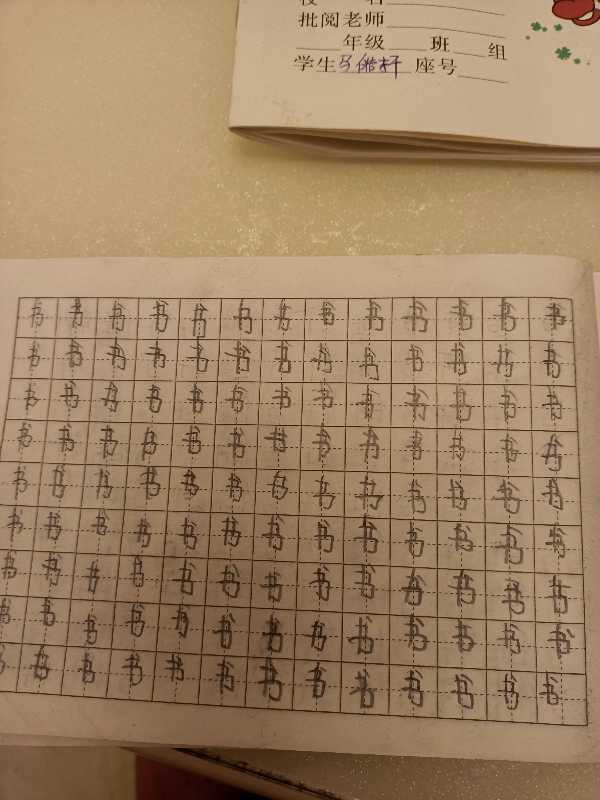 批阅老师
年级 班 组
学生 座号
书 书 书 书 书 书 书 书 书 书 书 书 书
书 书 书 书 书 书 书 书 书 书 书 书 书
书 书 书 书 书 书 书 书 书 书 书 书 书
书 书 书 书 书 书 书 书 书 书 书 书 书
书 书 书 书 书 书 书 书 书 书 书 书 书
书 书 书 书 书 书 书 书 书 书 书 书 书
书 书 书 书 书 书 书 书 书 书 书 书 书
书 书 书 书 书 书 书 书 书 书 书 书 书
书 书 书 书 书 书 书 书 书 书 书 书 书